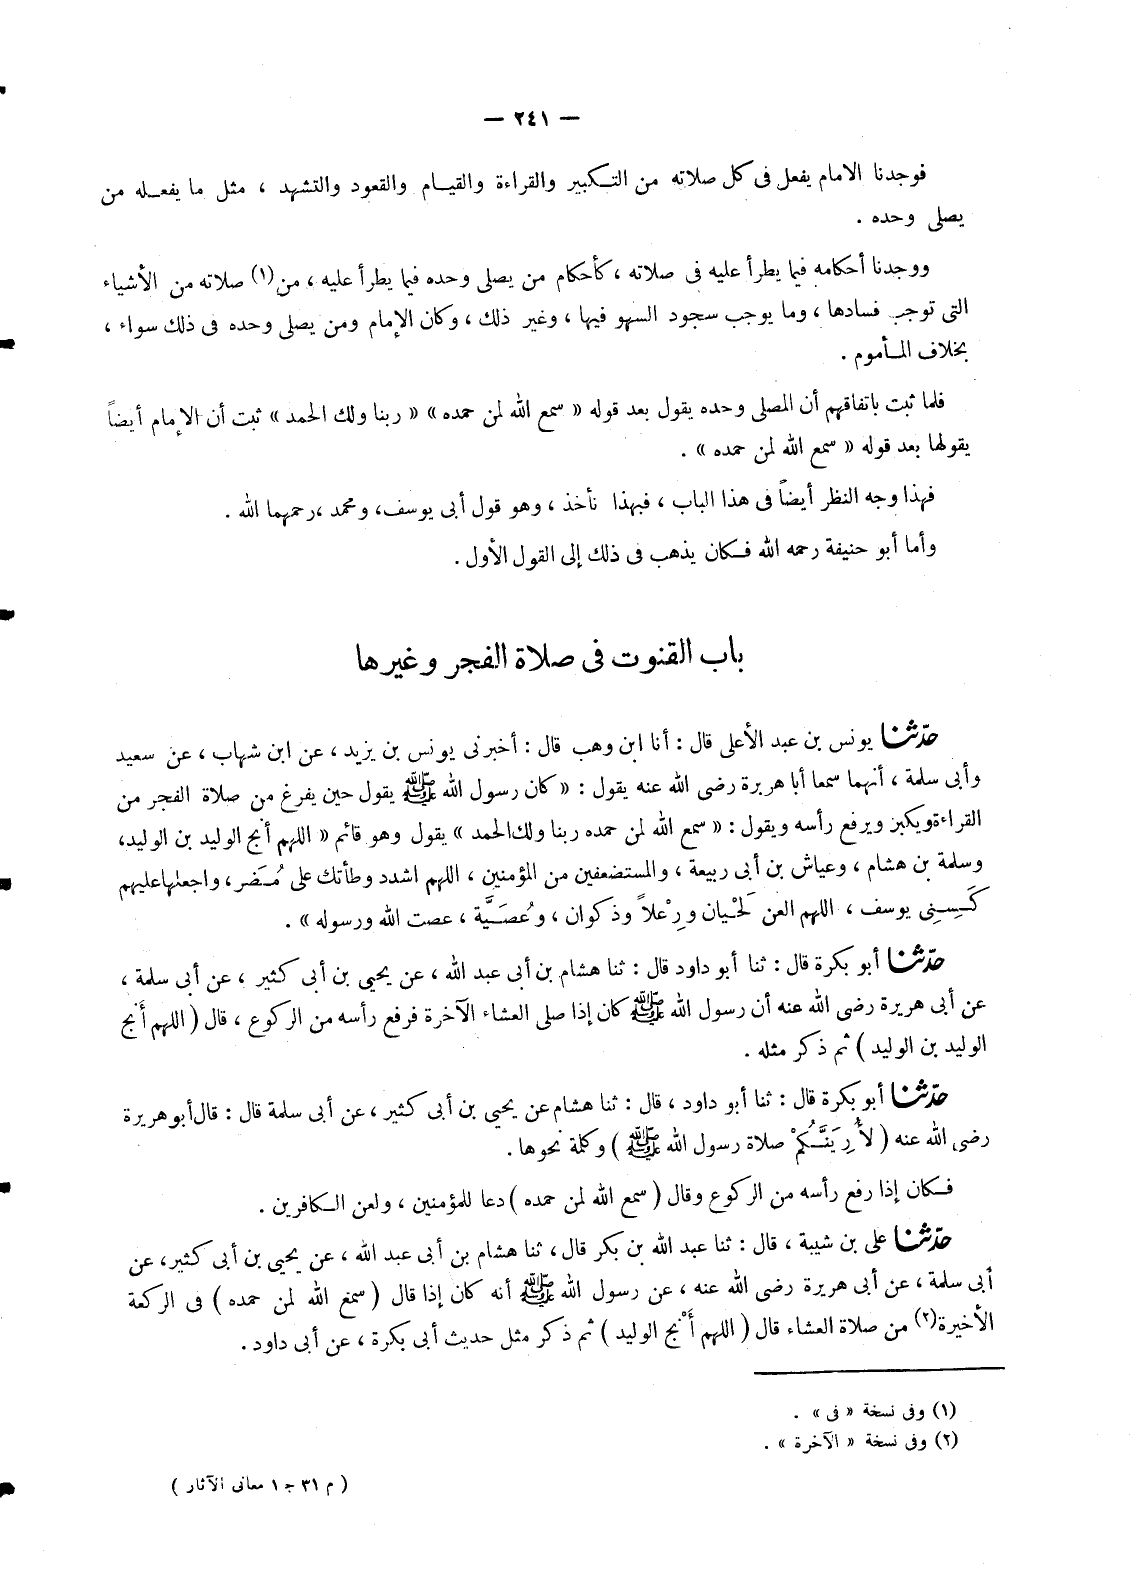 — ٢٤١ —
فوجدنا الامام يفعل فى كل صلاته من التكبير والقراءة والقيام والقعود والتشهد ، مثل ما يفعله من
يصلى وحده .
ووجدنا أحكامه فيما يطرأ عليه فى صلاته ، كأحكام من يصلى وحده فيما يطرأ عليه ، من (١) صلاته من الأشياء
التى توجب فسادها ، وما يوجب سجود السهو فيها ، وغير ذلك ، وكان الإمام ومن يصلى وحده فى ذلك سواء ،
بخلاف المأموم .
فلما ثبت باتفاقهم أن المصلى وحده يقول بعد قوله « سمع الله لمن حمده » « ربنا ولك الحمد » ثبت أن الإمام أيضاً
يقولها بعد قوله « سمع الله لمن حمده » .
فهذا وجه النظر أيضاً فى هذا الباب ، فبهذا نأخذ ، وهو قول أبى يوسف، ومحمد ،رحمهما الله .
وأما أبو حنيفة رحمه الله فكان يذهب فى ذلك إلى القول الأول .
باب القنوت فى صلاة الفجر وغيرها
حدّثنا يونس بن عبد الأعلى قال : أنا ابن وهب قال : أخبرنى يونس بن يزيد ، عن ابن شهاب ، عن سعيد
وأبى سلمة ، أنهما سمعا أبا هريرة رضى الله عنه يقول : « كان رسول الله ﷺ يقول حين يفرغ من صلاة الفجر من
القراءةويكبر ويرفع رأسه ويقول : « سمع الله لمن حمده ربنا ولك الحمد » يقول وهو قائم « اللهم أنج الوليد بن الوليد،
وسلمة بن هشام ، وعياش بن أبى ربيعة ، والمستضعفين من المؤمنين ، اللهم اشدد وطأتك على مُضَر، واجعلها عليهم
كَسِنِى يوسف ، اللهم العن لَحْيان ورِعْلاً وذكوان ، وعُصَيَّة ، عصت الله ورسوله » .
حدّثنا أبو بكرة قال : ثنا أبو داود قال : ثنا هشام بن أبى عبد الله ، عن يحيى بن أبى كثير ، عن أبى سلمة ،
عن أبى هريرة رضى الله عنه أن رسول الله ﷺ كان إذا صلى العشاء الآخرة فرفع رأسه من الركوع ، قال ( اللهم أَنج
الوليد بن الوليد ) ثم ذكر مثله .
حدّثنا أبو بكرة قال : ثنا أبو داود ، قال : ثنا هشام عن يحيى بن أبى كثير ، عن أبى سلمة قال : قال أبو هريرة
رضى الله عنه ( لأُرِيَنَّكُمْ صلاة رسول الله ﷺ ) وكلمة نحوها .
فكان إذا رفع رأسه من الركوع وقال ( سمع الله لمن حمده ) دعا للمؤمنين ، ولعن الكافرين .
حدّثنا على بن شيبة ، قال : ثنا عبد الله بن بكر قال ، ثنا هشام بن أبى عبد الله ، عن يحيى بن أبى كثير، عن
أبى سلمة ، عن أبى هريرة رضى الله عنه ، عن رسول الله ﷺ أنه كان إذا قال ( سمع الله لمن حمده ) فى الركعة
الأخيرة(٢) من صلاة العشاء قال ( اللهم أَنْج الوليد ) ثم ذكر مثل حديث أبى بكرة ، عن أبى داود .
(١) وفى نسخة « فى » .
(٢) وفى نسخة « الآخرة » .
( م ٣١ ج ١ معانى الآثار )